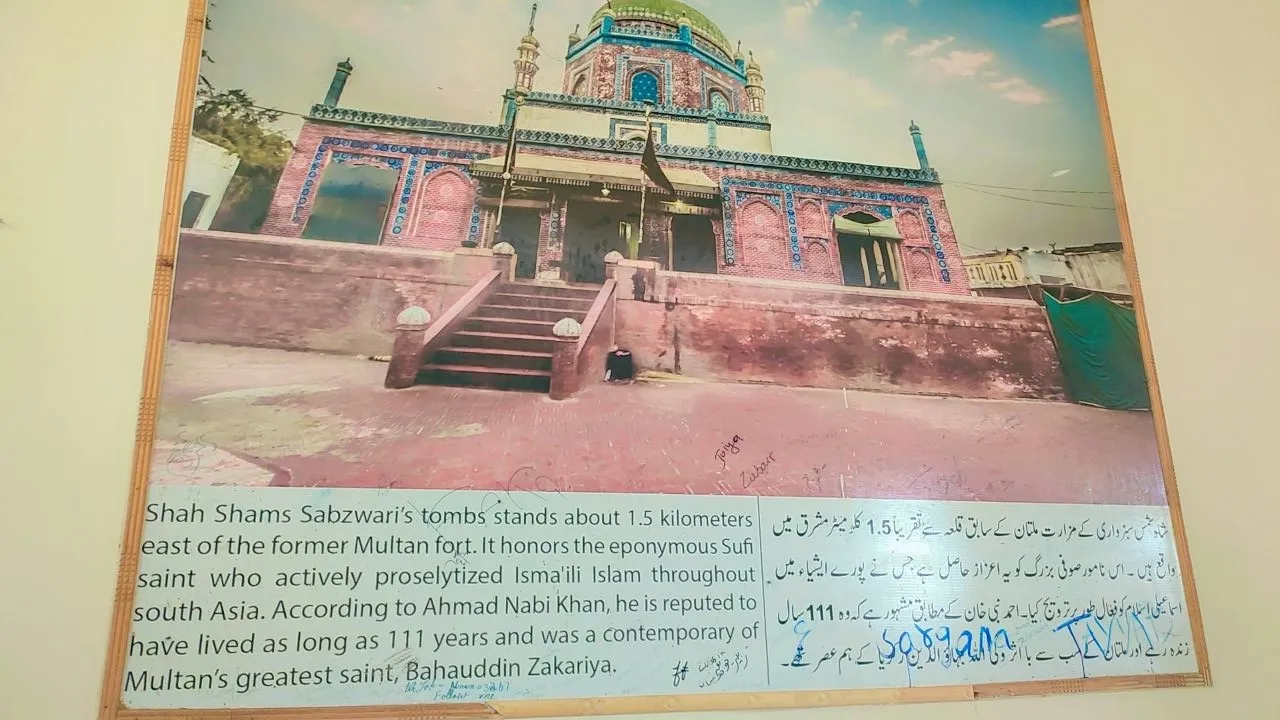 Joiya
Zubair
Shah Shams Sabzwari's tombs stands about 1.5 kilometers
east of the former Multan fort. It honors the eponymous Sufi
saint who actively proselytized Isma'ili Islam throughout
south Asia. According to Ahmad Nabi Khan, he is reputed to
have lived as long as 111 years and was a contemporary of
Multan's greatest saint, Bahauddin Zakariya.
شاہ شمس سبزواری کے مزارت ملتان کے سابق قلعہ سے تقریباً 1.5 کلومیٹر مشرق میں
واقع ہیں۔ اس نامور صوفی بزرگ کو یہ اعزاز حاصل ہے جس نے پورے ایشیاء میں
اسماعیلی اسلام کو فعال طور پر ترویج کیا۔ احمد نبی خان کے مطابق مشہور ہے کہ وہ 111 سال
زندہ رہے اور ملتان کے سب سے بااثر ولی اللہ بہاؤ الدین زکریا کے ہم عصر تھے۔
Follow me